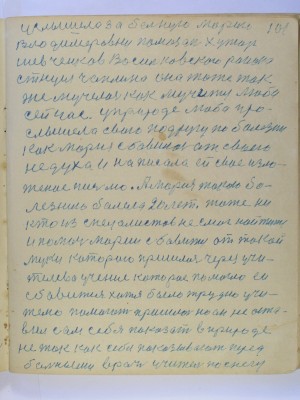 услышела за больную Марию 101
Владимеровну помозде хутор
шевченков Василковского района
станция чеплино она тоже так
же мучелас как мучится Люба
сейчас. у природе Люба про-
слышела свою подругу по болезни
как Мария сбавилас от своего
недуха и написала ей свое изло-
жение писмо. Амария такою бо-
лезнию болела 20 лет. тоже ни
кто из спецалистов не смог найти
и помоч марии сбавится от такой
муки которою пришлос через учи-
телево учение которое помогло ей
сбавится хотя было трудно учи-
телю помогат пришлос но он не оста-
вил сам себя показат в природе
не так как себя показывают пред
больными врачи учител по снегу